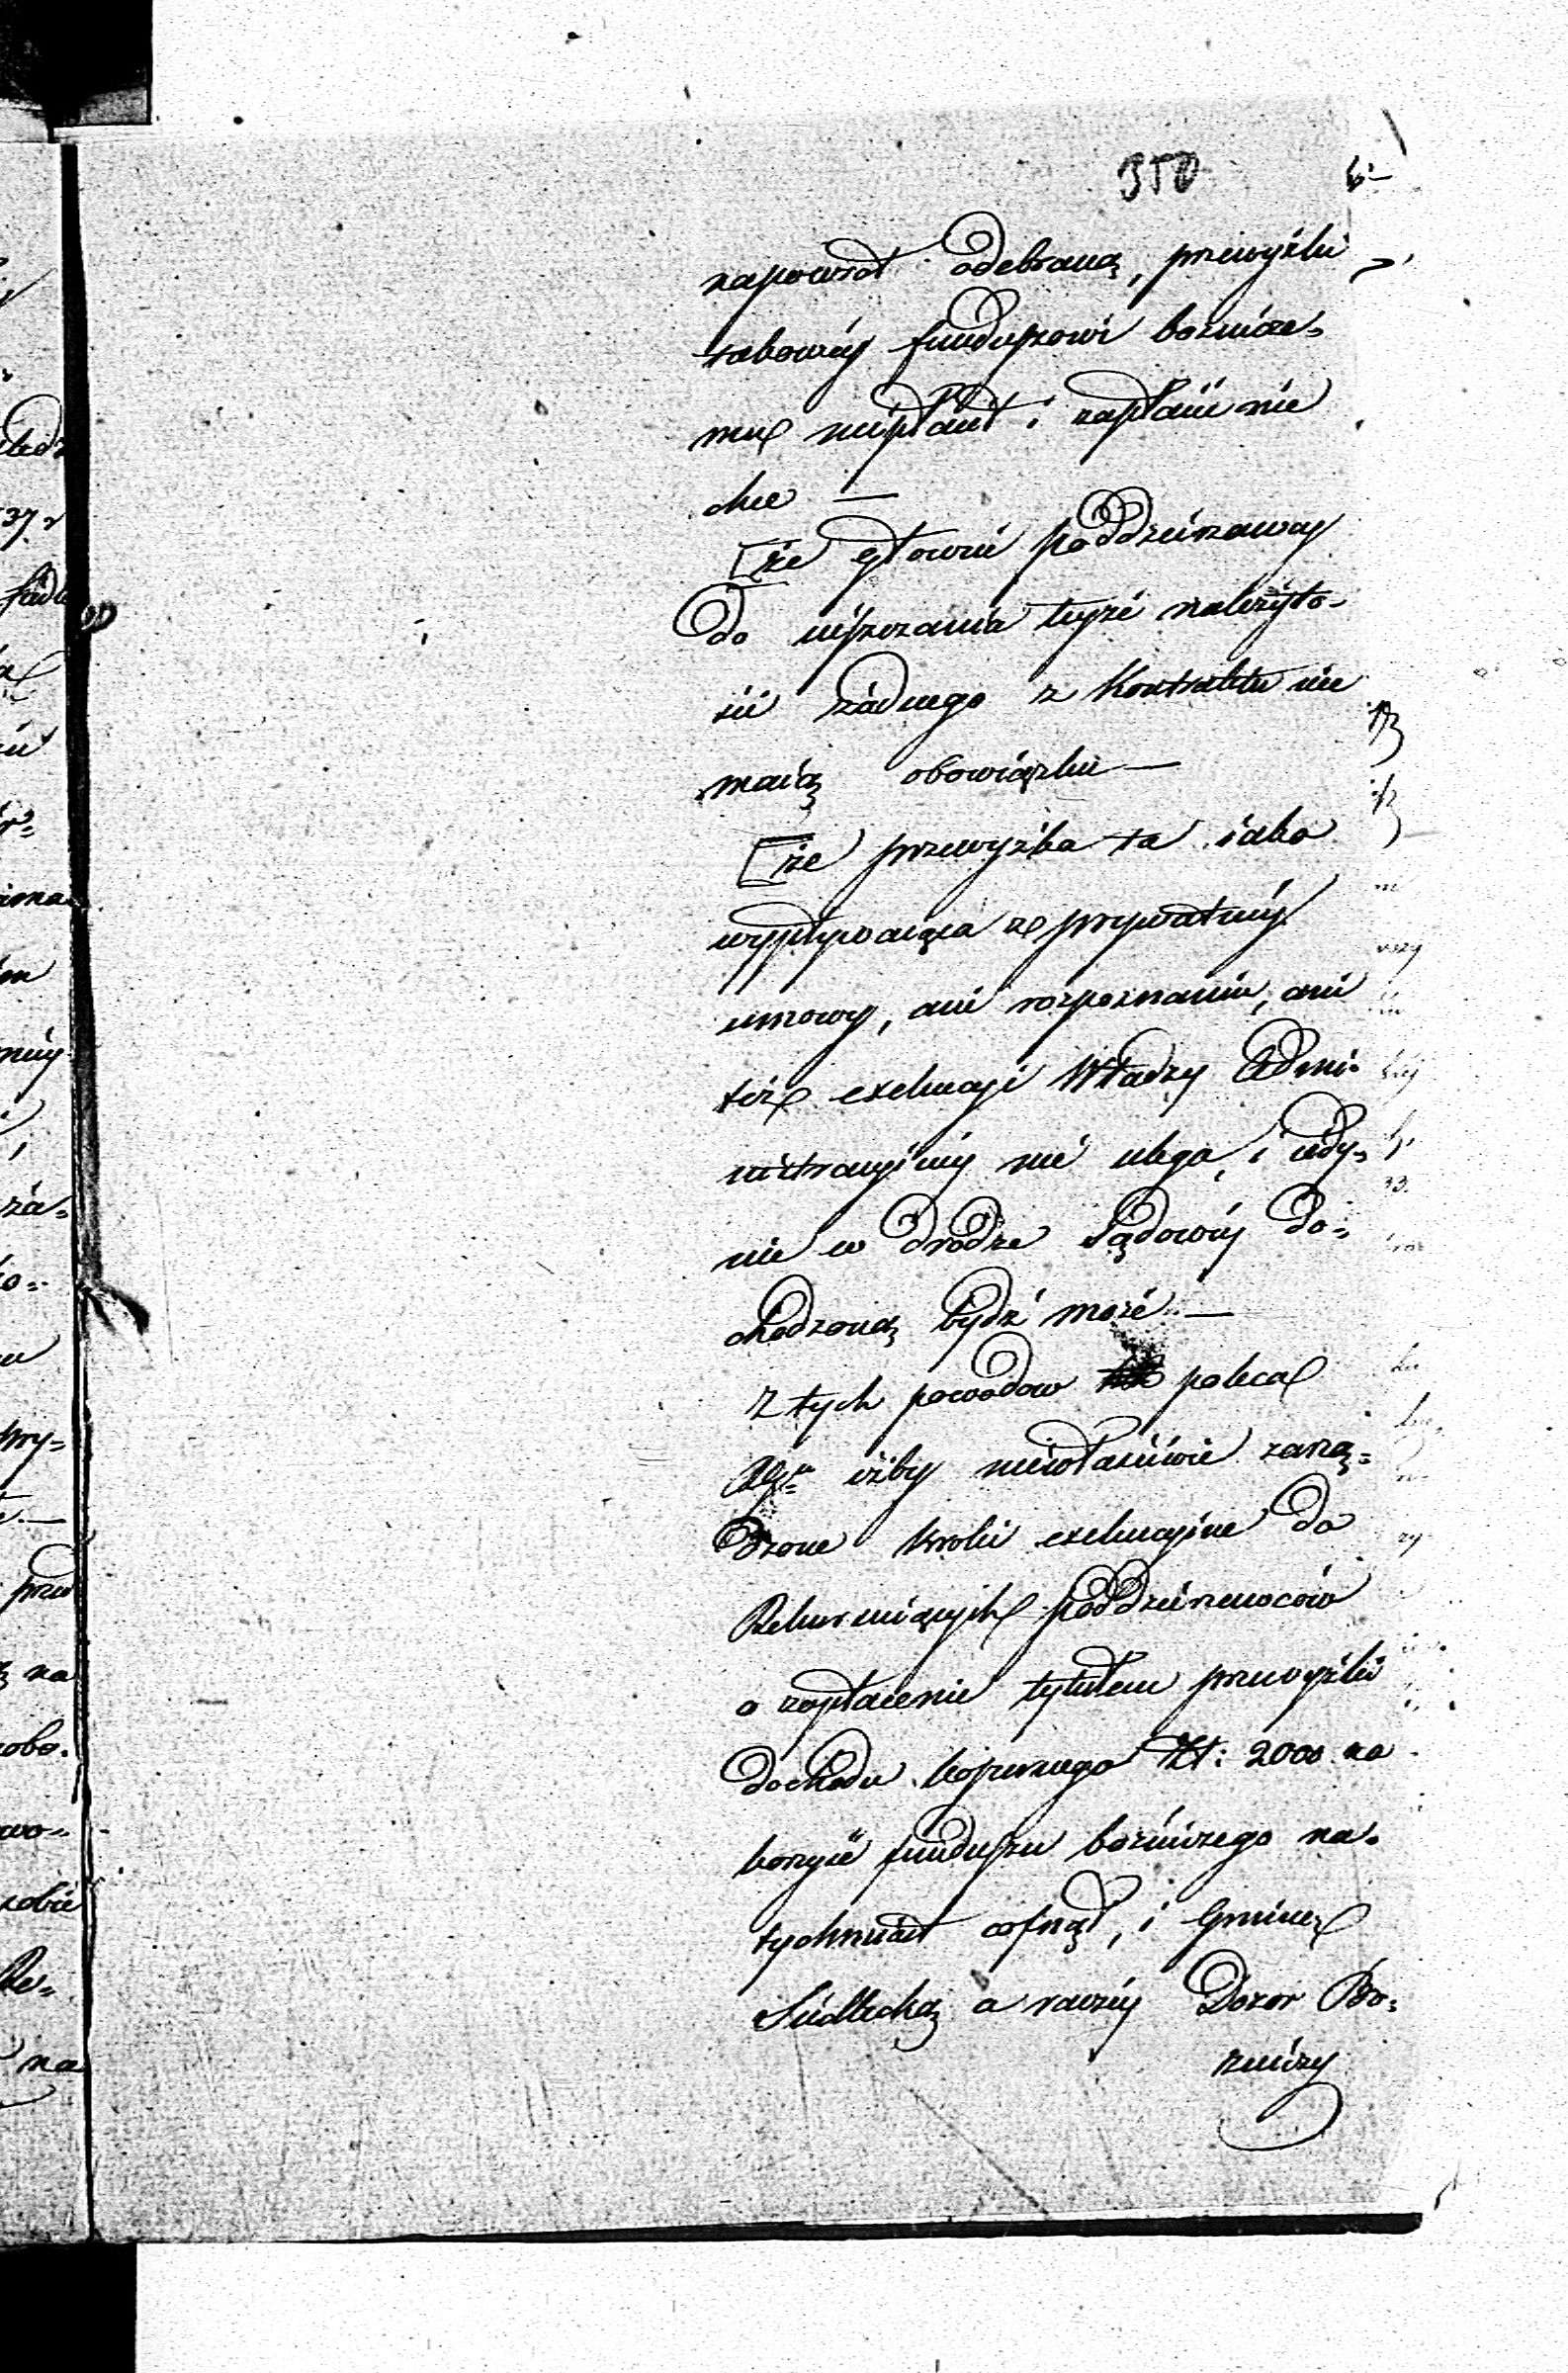 350
napowrót odebraną, przewyżki
takowéy funduszowi bożnicze-
mu niepłacił i zapłacić nie
chce —
że głównie poddzierżawcy
do uiszczania teyże należyto-
ści żadnego z Kontraktu nie
maią obowiązku —
że przewyżka ta iako
wypływaiąca z prywatnéy
umowy, ani rozpoznaniu, ani
też exekucyi Władzy Admi-
nistracyinéy nie ulega, i iedy-
nie w drodze Sądowéy do-
chodzoną bydź może. —
Z tych powodow poleca
iżby niewłaściwie zarzą-
dzone kroki exekucyine do
Rekurruiących poddzierżawców
o zapłacenie tytułem przewyżki
dochodu koszernego Zł: 2000 na
korzyść funduszu bożniczego na-
tychmiast cofnął, i Gminę
Siedlecką a raczéy Dozor Bo-
żniczy